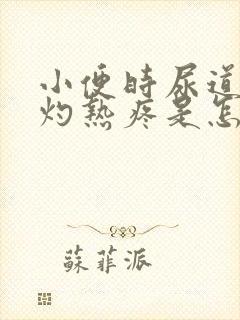 小便時尿道
灼熱疼是怎
蘇菲派